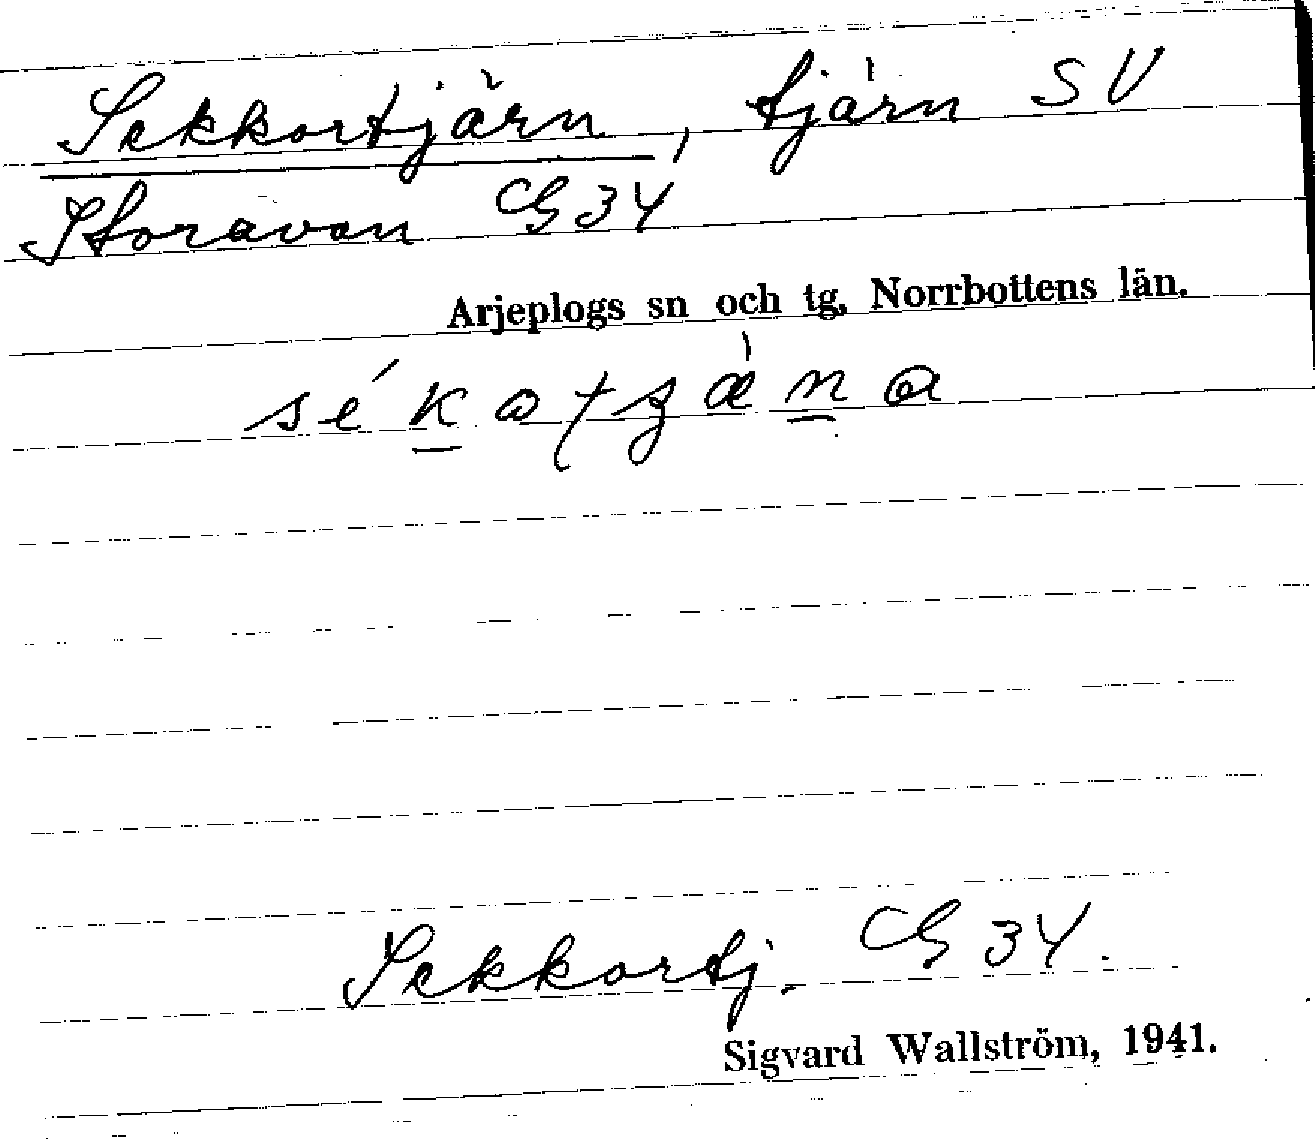 Sekkortjärn, tjärn SV
Storavan G34
Arjeplogs sn och tg, Norrbottens län.
Sekkortj. G34.
Sigvard Wallström, 1941.